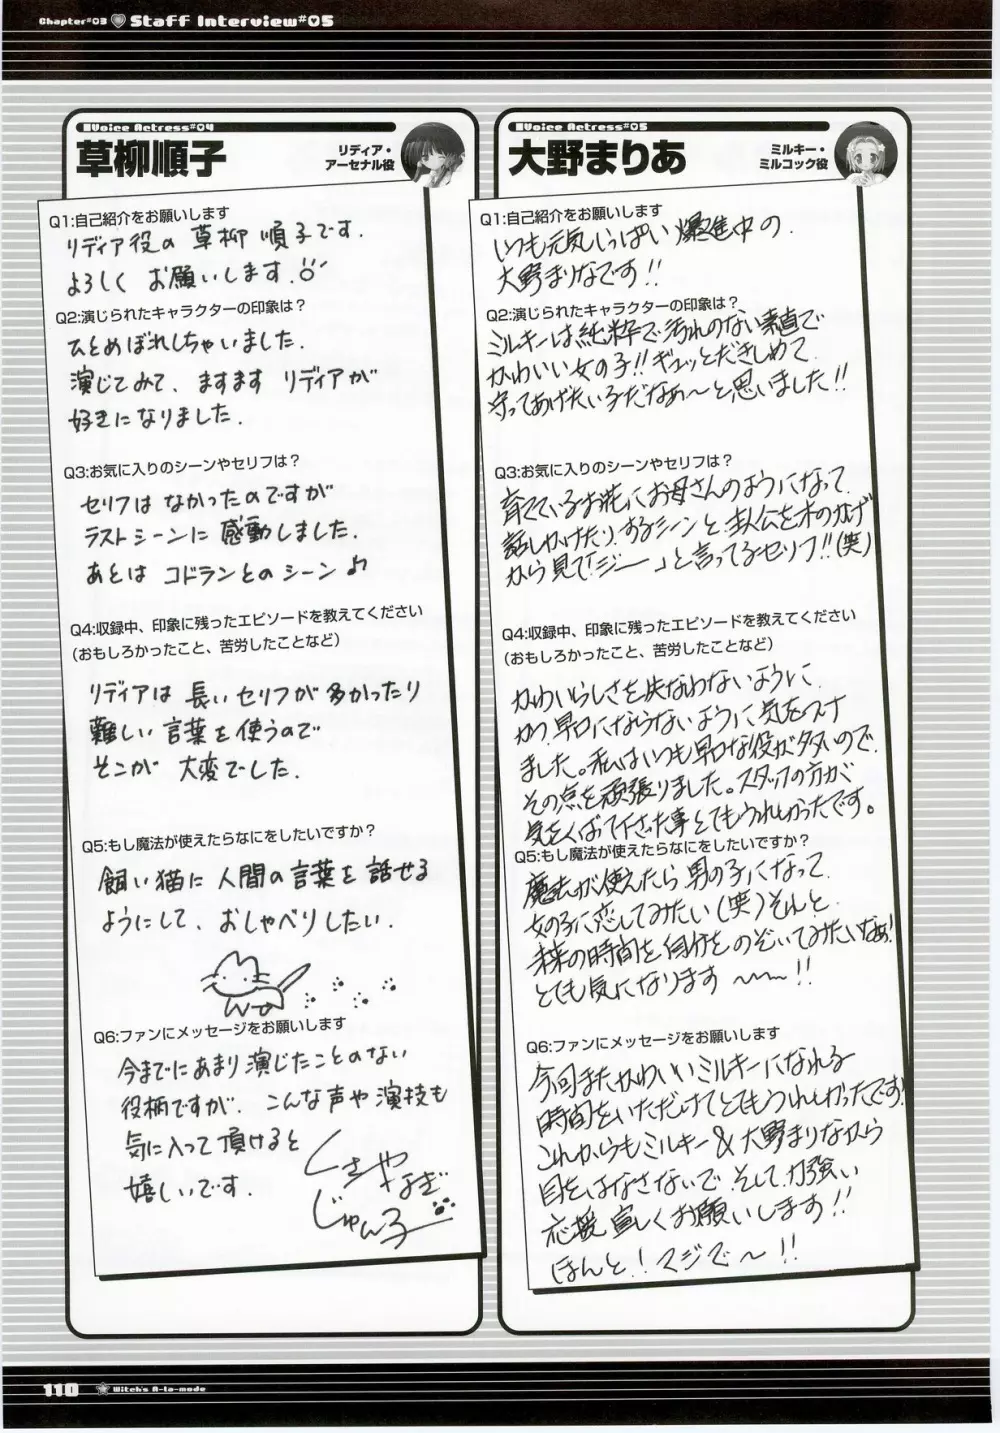 Chapter#03 Staff Interview#05
Voice Actress#04
草柳順子
リディア・
アーセナル役
Q1:自己紹介をお願いします
リディア役の 草柳 順子です.
よろしく お願いします.
Q2:演じられたキャラクターの印象は？
ひとめぼれしちゃいました.
演じてみて、ますます リディアが
好きになりました.
Q3:お気に入りのシーンやセリフは？
セリフは なかったのですが
ラストシーンに 感動しました.
あとは コドランとのシーン♪
Q4:収録中、印象に残ったエピソードを教えてください
（おもしろかったこと、苦労したことなど）
リディアは 長いセリフが 多かったり
難しい 言葉を使うので
そこが 大変でした.
Q5:もし魔法が使えたらなにをしたいですか？
飼い猫に 人間の言葉を 話せる
ようにして、おしゃべりしたい.
Q6:ファンにメッセージをお願いします
今までにあまり演じたことのない
役柄ですが、こんな声や演技も
気に入って頂けると
嬉しいです.
くさやなぎ
じゅん子
Voice Actress#05
大野まりあ
ミルキー・
ミルコック役
Q1:自己紹介をお願いします
いつも元気いっぱい 爆進中の
大野まりなです!!
Q2:演じられたキャラクターの印象は？
ミルキーは純粋で汚れのない素直で
かわいい女の子!! ギュッとだきしめて
守ってあげたい子だなぁ〜と思いました!!
Q3:お気に入りのシーンやセリフは？
育てているお花にお母さんのようになって
話しかけたりするシーンと、主人公を木のかげ
から見て「ジー」と言ってるセリフ!!(笑)
Q4:収録中、印象に残ったエピソードを教えてください
（おもしろかったこと、苦労したことなど）
かわいらしさを失なわないように
かつ、早口にならないように気をつけ
ました。私はいつも早口な役が多いので、
その点を頑張りました。スタッフの方が
気をくばって下さった事とてもうれしかったです。
Q5:もし魔法が使えたらなにをしたいですか？
魔法が使えたら 男の子になって
女の子に恋してみたい(笑) そんと
未来の時間を自分をのぞいてみたいなぁ!
とても気になります 〜〜!!
Q6:ファンにメッセージをお願いします
今回またかわいいミルキーになれる
時間をいただけてとてもうれしかったです!
これからもミルキー＆大野まりなから
目をはなさないで そして力強い
応援 宜しくお願いします!!
ほんと! マジで〜!!
110 Witch's A-la-mode